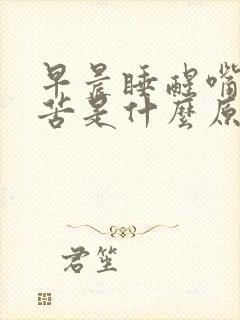 早晨睡醒嘴
苦是什麼原
君笙